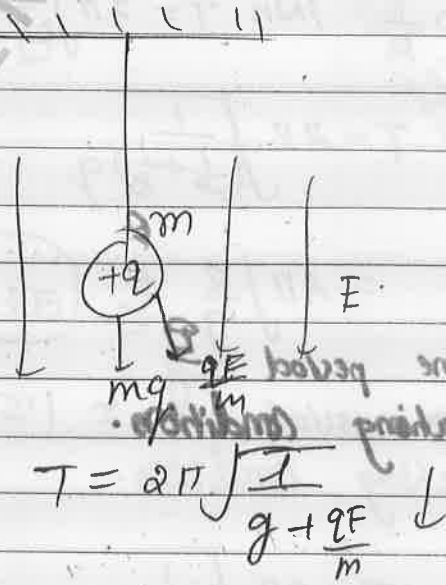 m
+q
E
mg qE/m
T = 2π √(1 / (g + qE/m))